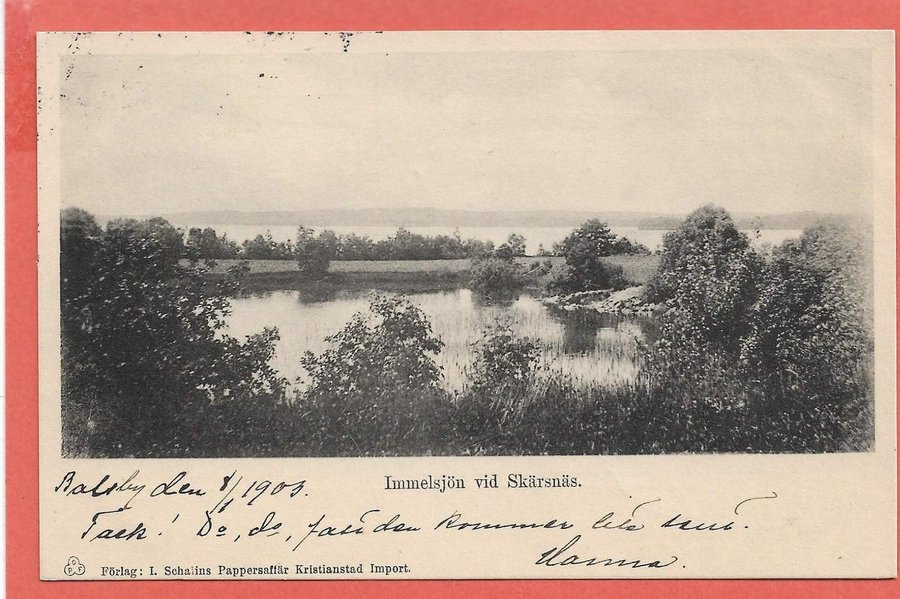 Balsby den 8/1 1903.
Immelsjön vid Skärsnäs.
Tack! Do, do, fast den kommer lite sent.
Hanna.
Förlag: I. Schalins Pappersaffär Kristianstad Import.